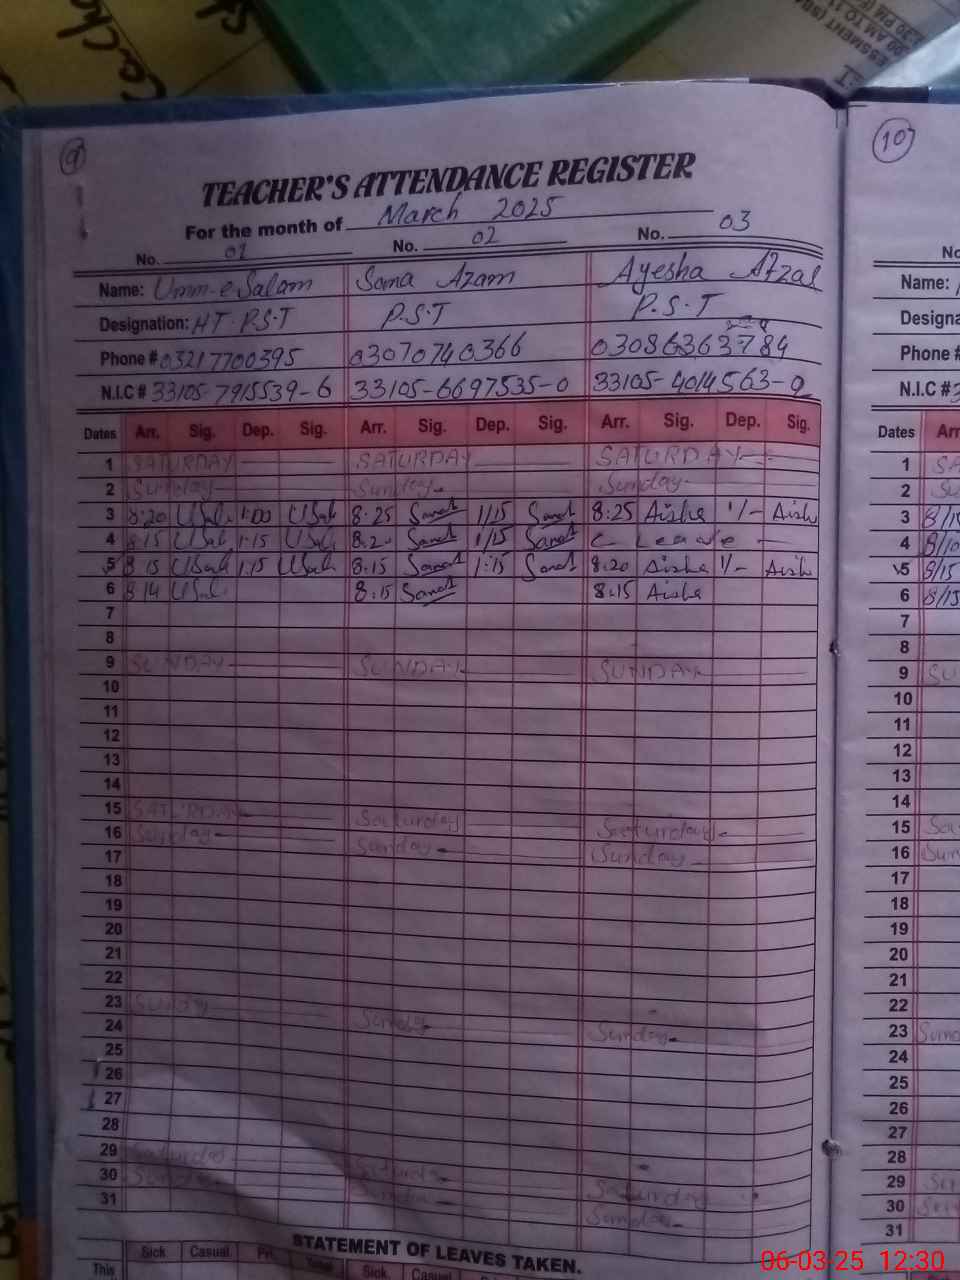 9
10
TEACHER'S ATTENDANCE REGISTER
For the month of March 2025
No. 01 No. 02 No. 03
Name: Umm-e-Salam Sama Azam Ayesha Afzal
Designation: HT P.S.T P.S.T P.S.T
Phone # 03217700395 03070740366 03086363784
N.I.C # 33105-7915539-6 33105-6697535-0 33105-4014563-0
Dates Arr. Sig. Dep. Sig. Arr. Sig. Dep. Sig. Arr. Sig. Dep. Sig.
1 SATURDAY SATURDAY SATURDAY
2 Sunday Sunday Sunday
3 8:20 1:00 8:25 1/15 8:25 Aisha 1/- Aisha
4 8:15 1:15 8:2 1/15 Leave
5 8 15 1:15 8:15 1:15 8:20 Aisha 1/- Aisha
6 8 14 8:15 8:15 Aisha
7
8
9 SUNDAY SUNDAY SUNDAY
10
11
12
13
14
15 SATURDAY Saturday Saturday
16 Sunday Sunday Sunday
17
18
19
20
21
22
23 Sunday Sunday Sunday
24
25
26
27
28
29 Saturday Saturday Saturday
30 Sunday Sunday Sunday
31
STATEMENT OF LEAVES TAKEN.
This Sick Casual Pri. Total Sick Casual
Name:
Phone #
N.I.C #
Dates
1
2
3 8/15
4 8/10
5 8/15
6 8/15
7
8
9
10
11
12
13
14
15
16
17
18
19
20
21
22
23
24
25
26
27
28
29
30
31
06-03-25 12:30